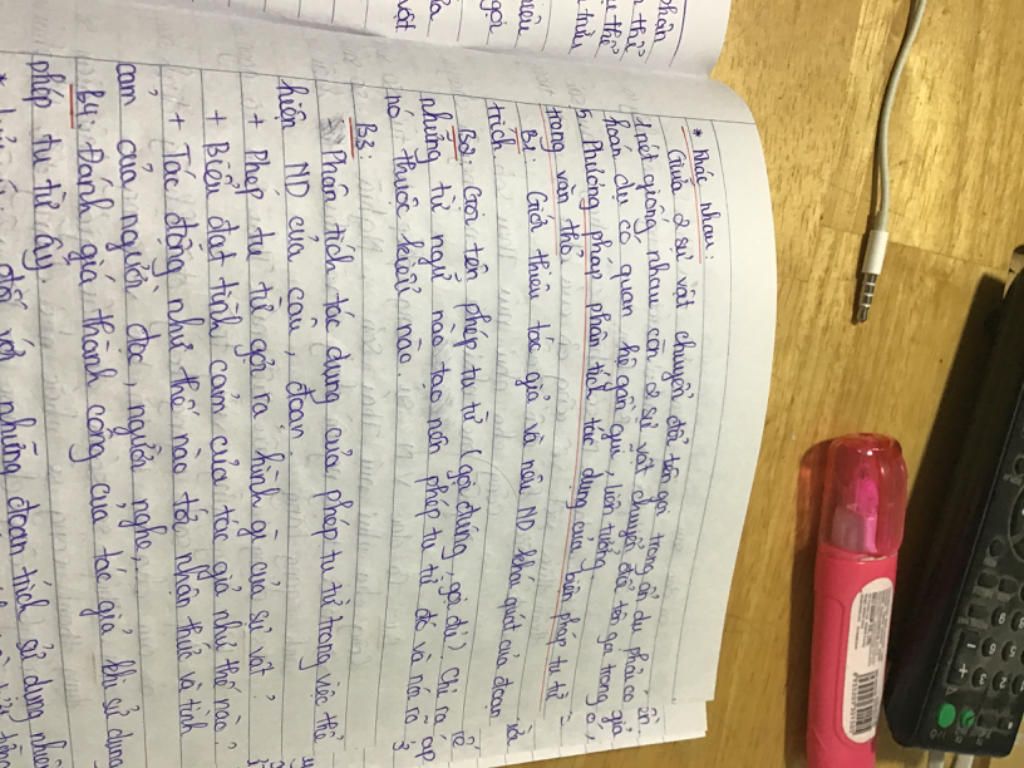 * Khác nhau:
Giữa 2 sự vật chuyển đổi tên gọi trong ẩn dụ phải có
1 nét giống nhau còn 2 sự vật chuyển đổi tên gọi trong
hoán dụ có quan hệ gần gũi, liên tưởng.
5. Phương pháp phân tích tác dụng của biện pháp tu từ
trong văn thơ
B1: Giới thiệu tác giả và nêu ND khái quát của đoạn
trích.
B2: Gọi tên phép tu từ (gọi đúng, gọi đủ). Chỉ rõ
những từ ngữ nào tạo nên phép tu từ đó và nói rõ
nó thuộc kiểu nào.
B3:
Phân tích tác dụng của phép tu từ trong việc thể
hiện ND của câu, đoạn.
+ Phép tu từ gợi ra hình gì của sự vật?
+ Biểu đạt tình cảm của tác giả như thế nào?
+ Tác động như thế nào tới nhận thức và tích
cảm của người đọc, người nghe,
B4: Đánh giá thành công của tác giả khi sử dụng
phép tu từ ấy.
đối với những đoạn trích sử dụng